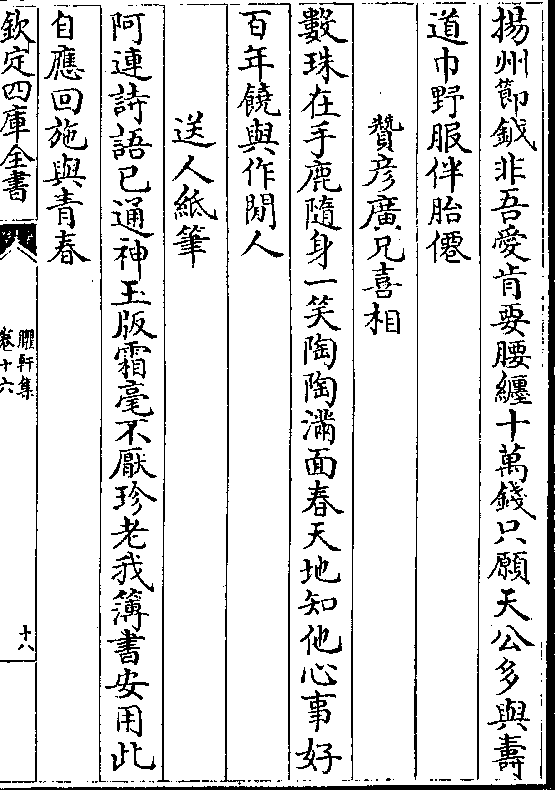 揚州節鉞非吾愛肯要腰纏十萬錢只願天公多與壽
道巾野服伴胎僊
贊彦廣兄喜相
數珠在手鹿隨身一笑陶陶滿面春天地知他心事好
百年饒與作閒人
送人紙筆
阿連詩語已通神玉版霜毫不厭珍老我簿書安用此
自應回施與青春
欽定四庫全書
臞軒集
卷十六
十八